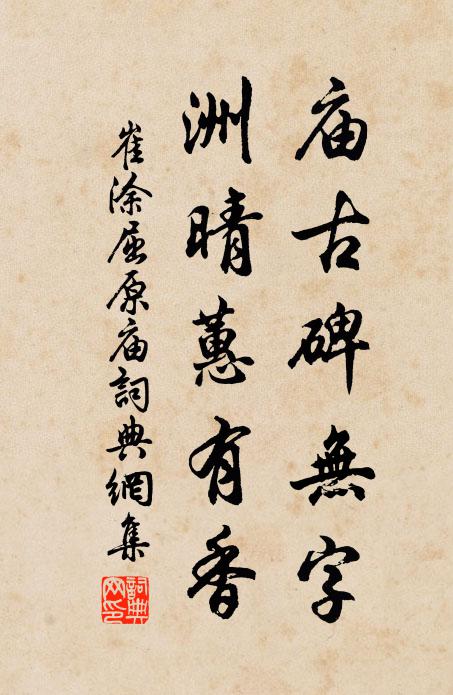 庙古碑無字
洲晴蕙有香
崔涂屈原庙詞典網集
詞典網印